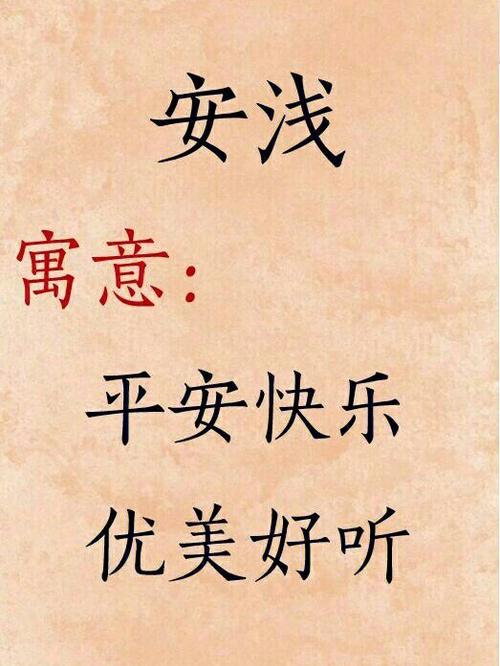 安浅
寓意：
平安快乐
优美好听